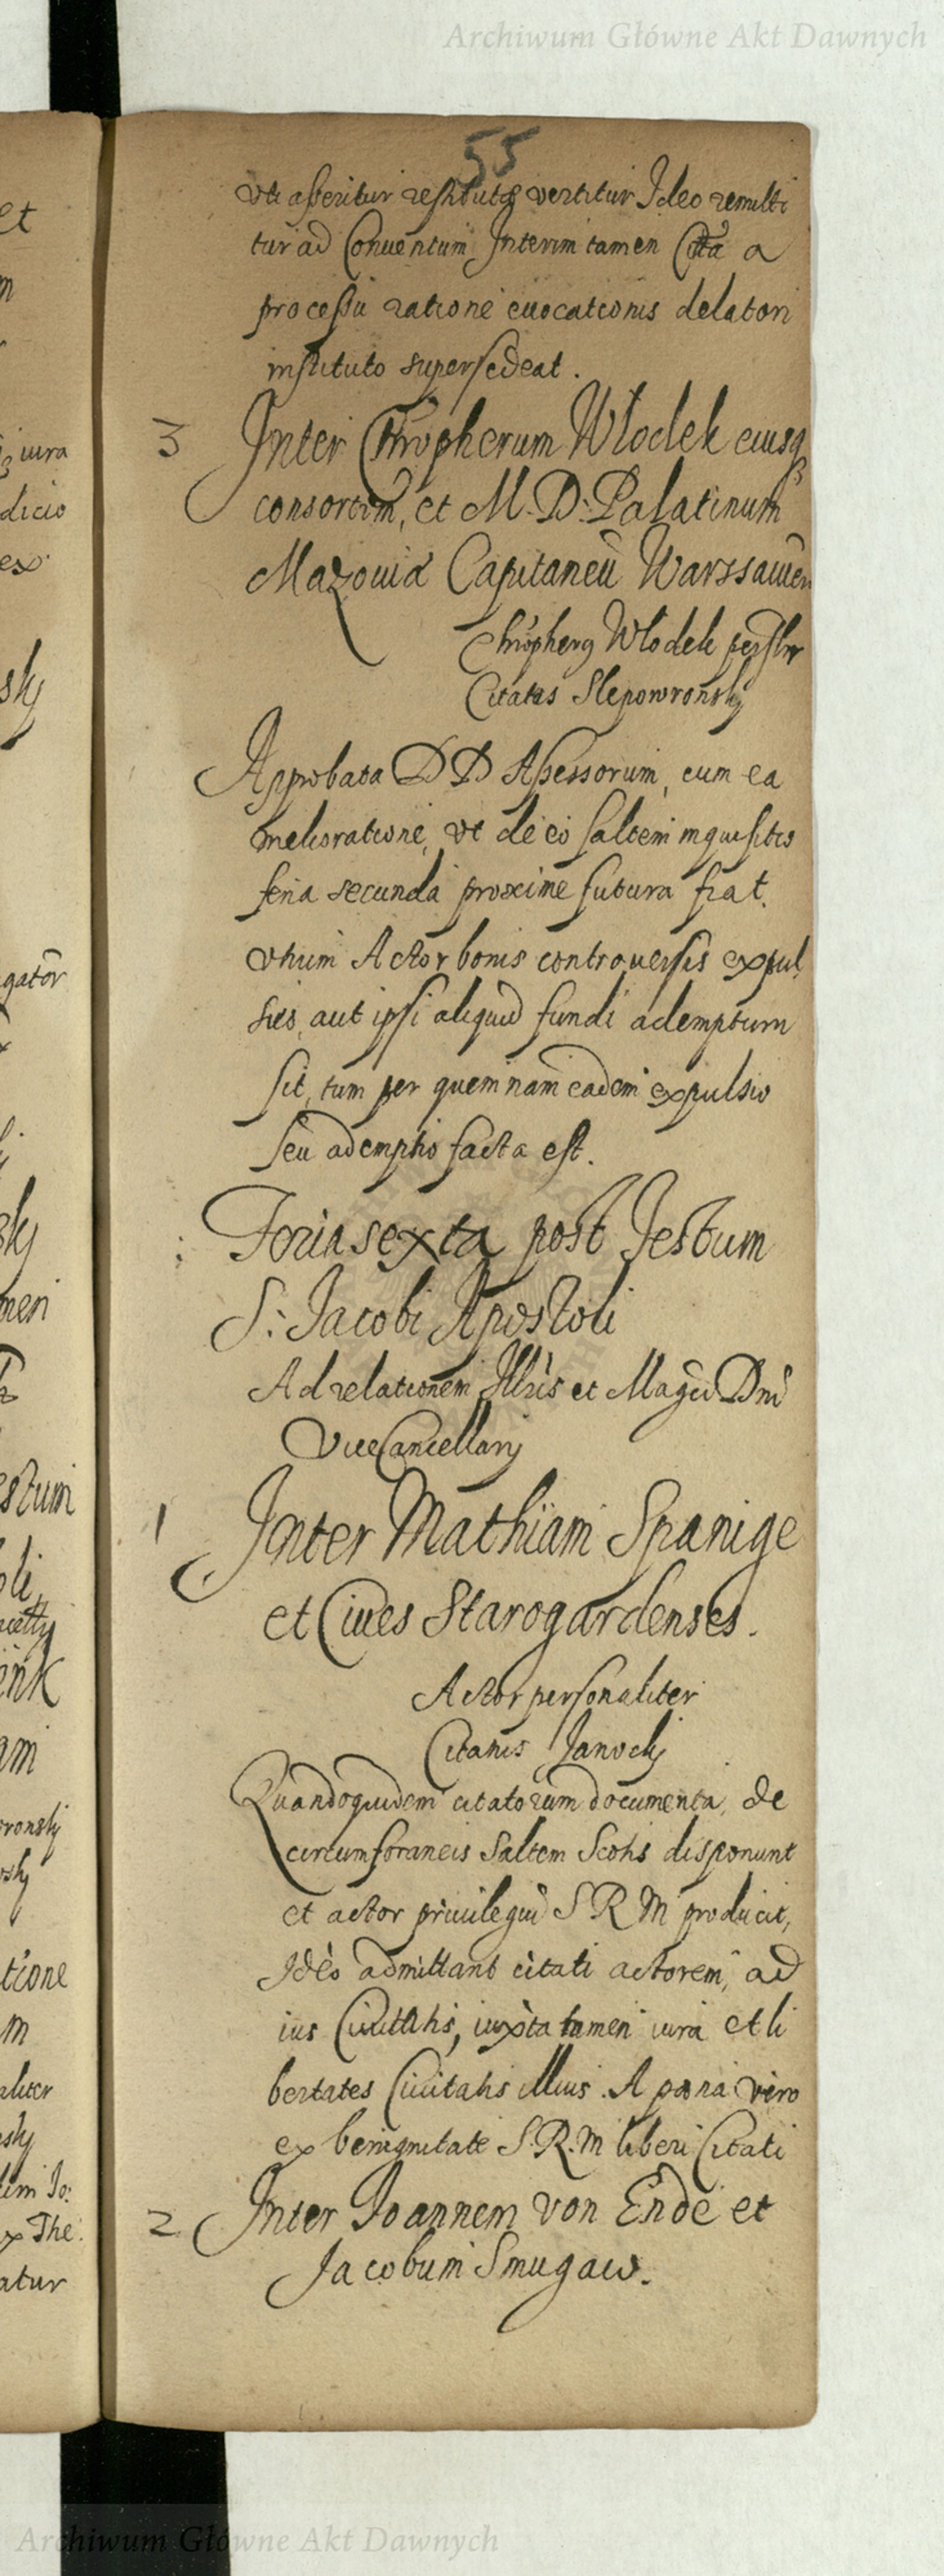 Archiwum Główne Akt Dawnych
55
vti asseritur restitutus vertitur Ideo remitti
tur ad Conuentum, Interim tamen Citta a
processu ratione euocationis delatori
instituto supersedeat.
3 Inter Chropherum Wlodek eiusq
consortem, et M. D. Palatinum
Mazouiae Capitaneu Warssauien
Chropherg Wlodek persolr
Citatus Slepowronsky
Approbata DD Assessorum, cum ea
melioratione, vt de eo saltem inquisitio
feria secunda proxime futura fiat.
vtrum Actor bonis controuersis expul
sus, aut ipsi aliquid fundi ademptum
sit, tum per quemnam eadem expulsio
seu ademptio facta est.
Feria sexta post Festum
S: Jacobi Apostoli
Ad relationem Illris et Magci Dni
ViceCancellarij
1 Inter Mathiam Spanige
et Ciues Starogardenses.
Actor personaliter
Citatis Janocki
Quandoquidem citatorum documenta, de
circumforaneis saltem Scotis disponunt
et actor priuilegiu S R M producit,
Ideo admittant citati actorem, ad
ius Ciuitatis, iuxta tamen iura et li
bertates Ciuitatis illius. A poena vero
ex benignitate S. R. M liberi Citati
2 Inter Joannem von Ende et
Jacobum Smugaw.
Archiwum Główne Akt Dawnych